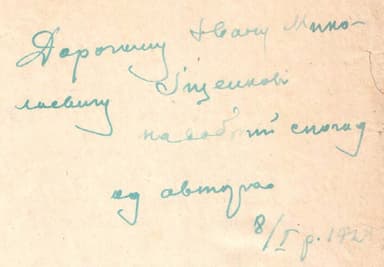 Дорогому Івану Мико-
лаевичу Іщенкові
на добрий спогад
од автора
8/I р. 192